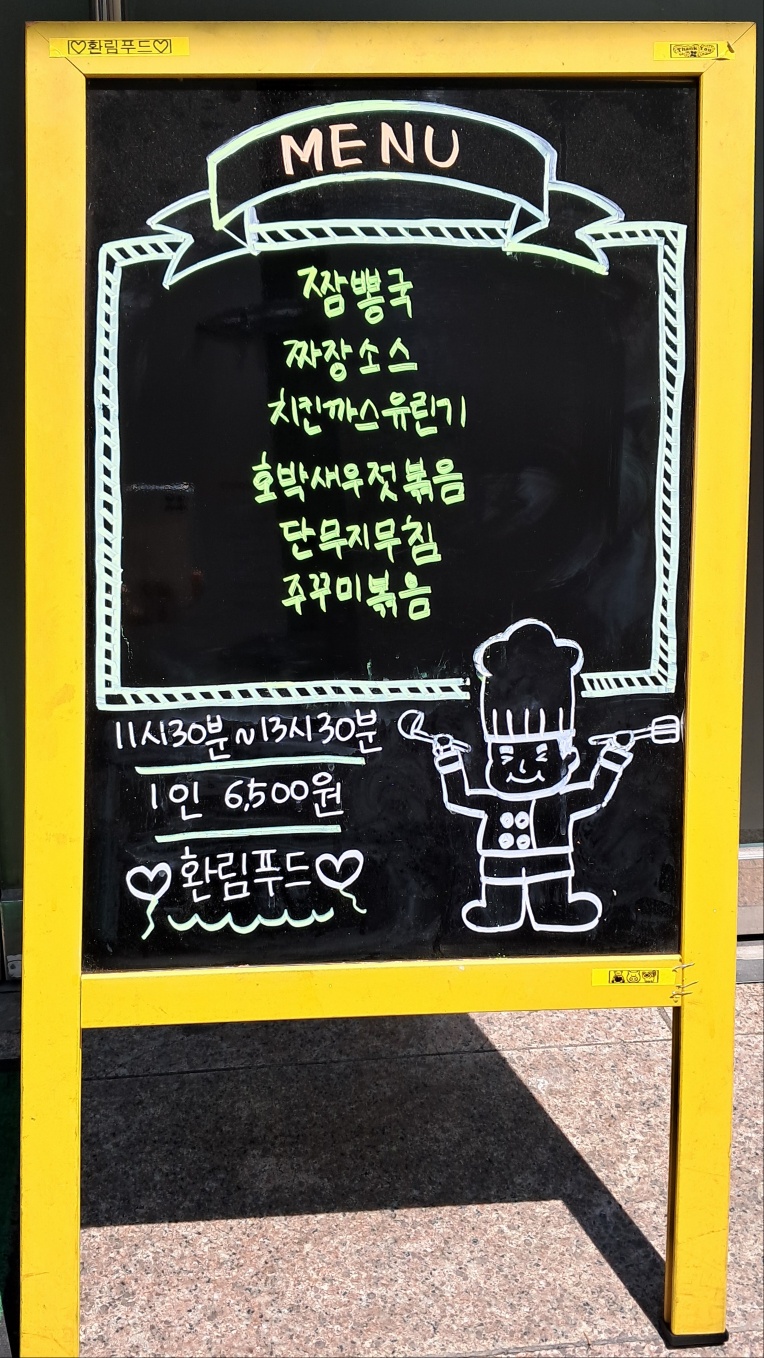 ♡환림푸드♡
Thank You
MENU
짬뽕국
짜장소스
치킨까스유린기
호박새우젓볶음
단무지무침
주꾸미볶음
11시30분~13시30분
1인 6,500원
환림푸드